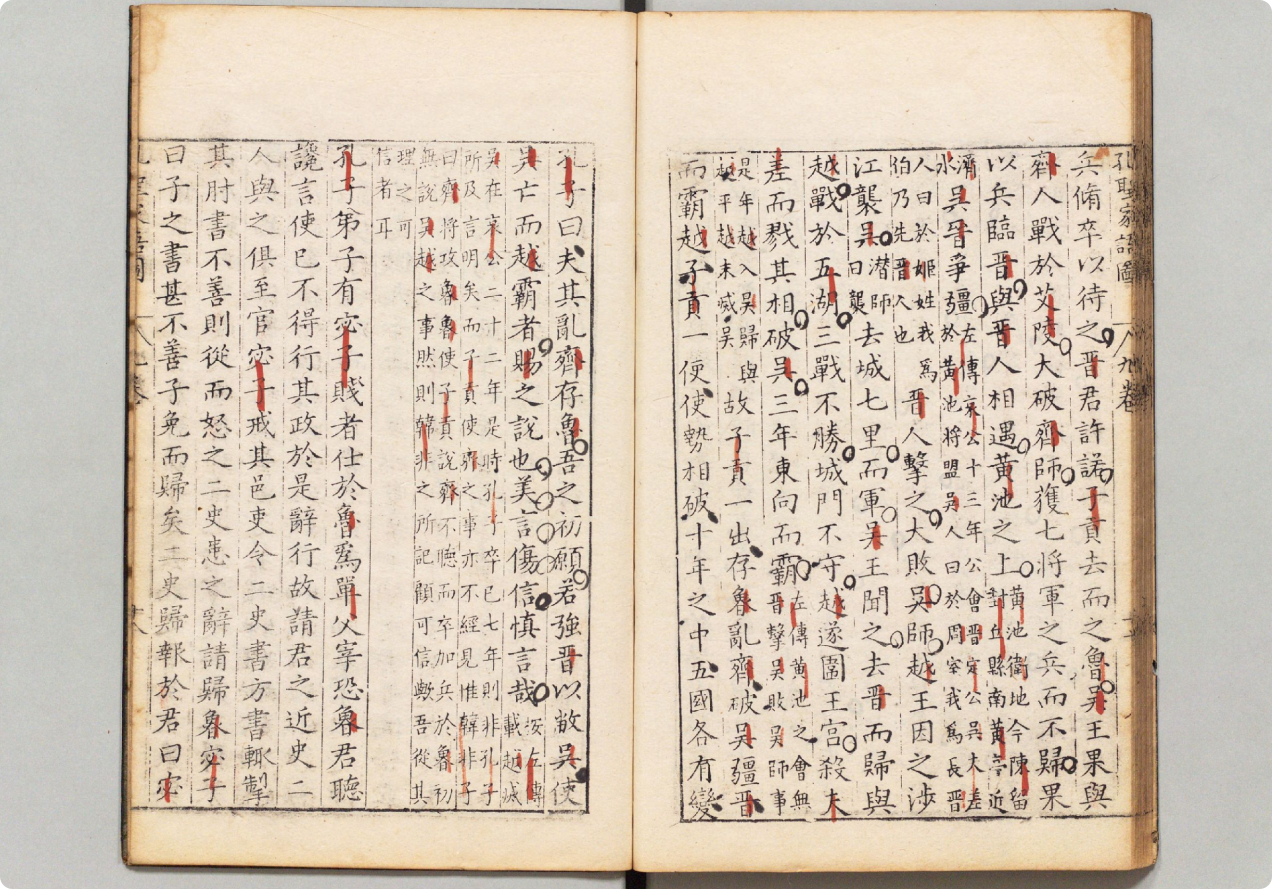 孔聖家語圖 八九卷
兵脩卒以待之晋君許諾子貢去而之魯吳王果與
齊人戰於艾陵大破齊師獲七將軍之兵而不歸果
以兵臨晋與晋人相遇黃池之上黃池衛地今陳留封丘縣南黃亭近
濟水吳晋爭彊左傳哀公十三年公會晋定公吳夫差於黃池將盟吳人曰於周室我爲長晋
人曰於姬姓我爲伯乃先晋人也晋人擊之大敗吳師越王因之涉
江襲吳潜師曰襲去城七里而軍吳王聞之去晋而歸與
越戰於五湖三戰不勝城門不守越遂圍王宮殺夫
差而戮其相破吳三年東向而霸左傳黃池之會無晋擊吳敗吳師事
是年越入吳歸與越平越未滅吳故子貢一出存魯亂齊破吳彊晋
而霸越子貢一使使勢相破十年之中五國各有變
孔子曰夫其亂齊存魯吾之初願若強晋以敝吳使
吳亡而越霸者賜之說也美言傷信慎言哉按左傳載越滅
吳在哀公二十二年是時孔子卒已七年則非孔子
所及言明矣而子貢使齊之事亦不經見惟韓非子
曰齊將攻魯魯使子貢說齊不聽而卒加兵於魯初
無說吳越之事然則韓非之所記顧可信歟吾從其
理之可
信者耳
孔子弟子有宓子賤者仕於魯爲單父宰恐魯君聽
讒言使已不得行其政於是辭行故請君之近史二
人與之俱至官宓子戒其邑吏令二史書方書輒掣
其肘書不善則從而怒之二史患之辭請歸魯宓子
曰子之書甚不善子免而歸矣二史歸報於君曰宓